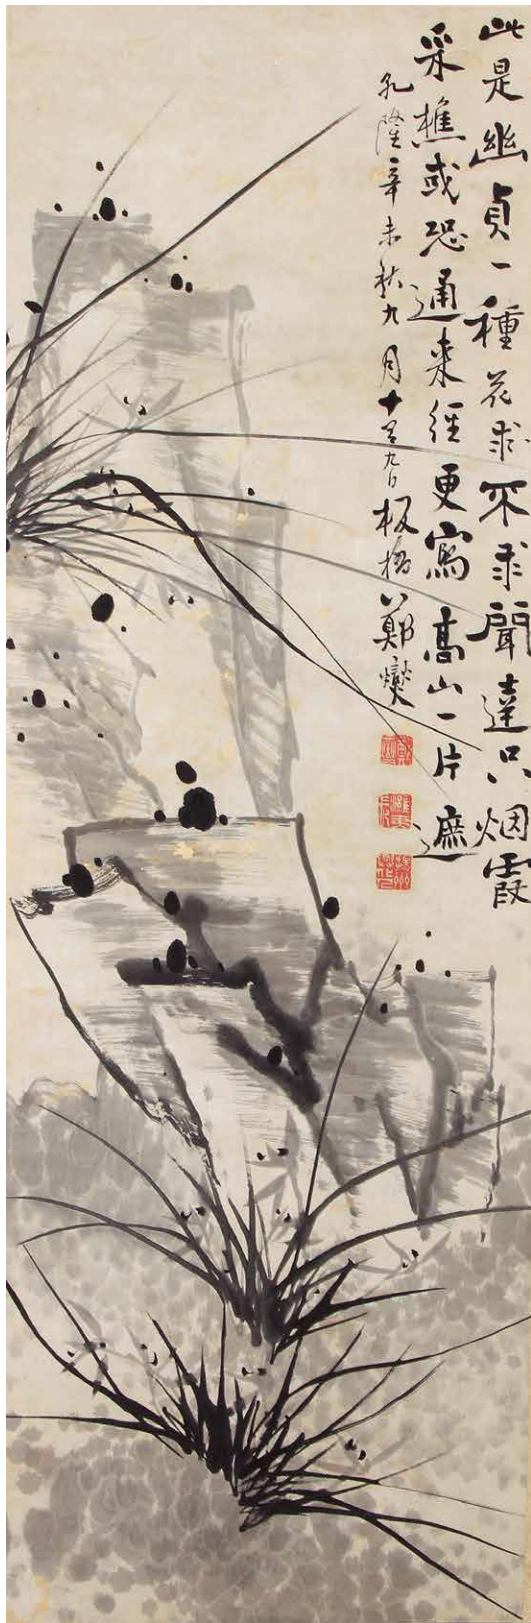 此是幽貞一種花求不求聞達只烟霞
采樵或恐通來徑更寫高山一片遮
乾隆辛未秋九月十有九日板橋鄭燮